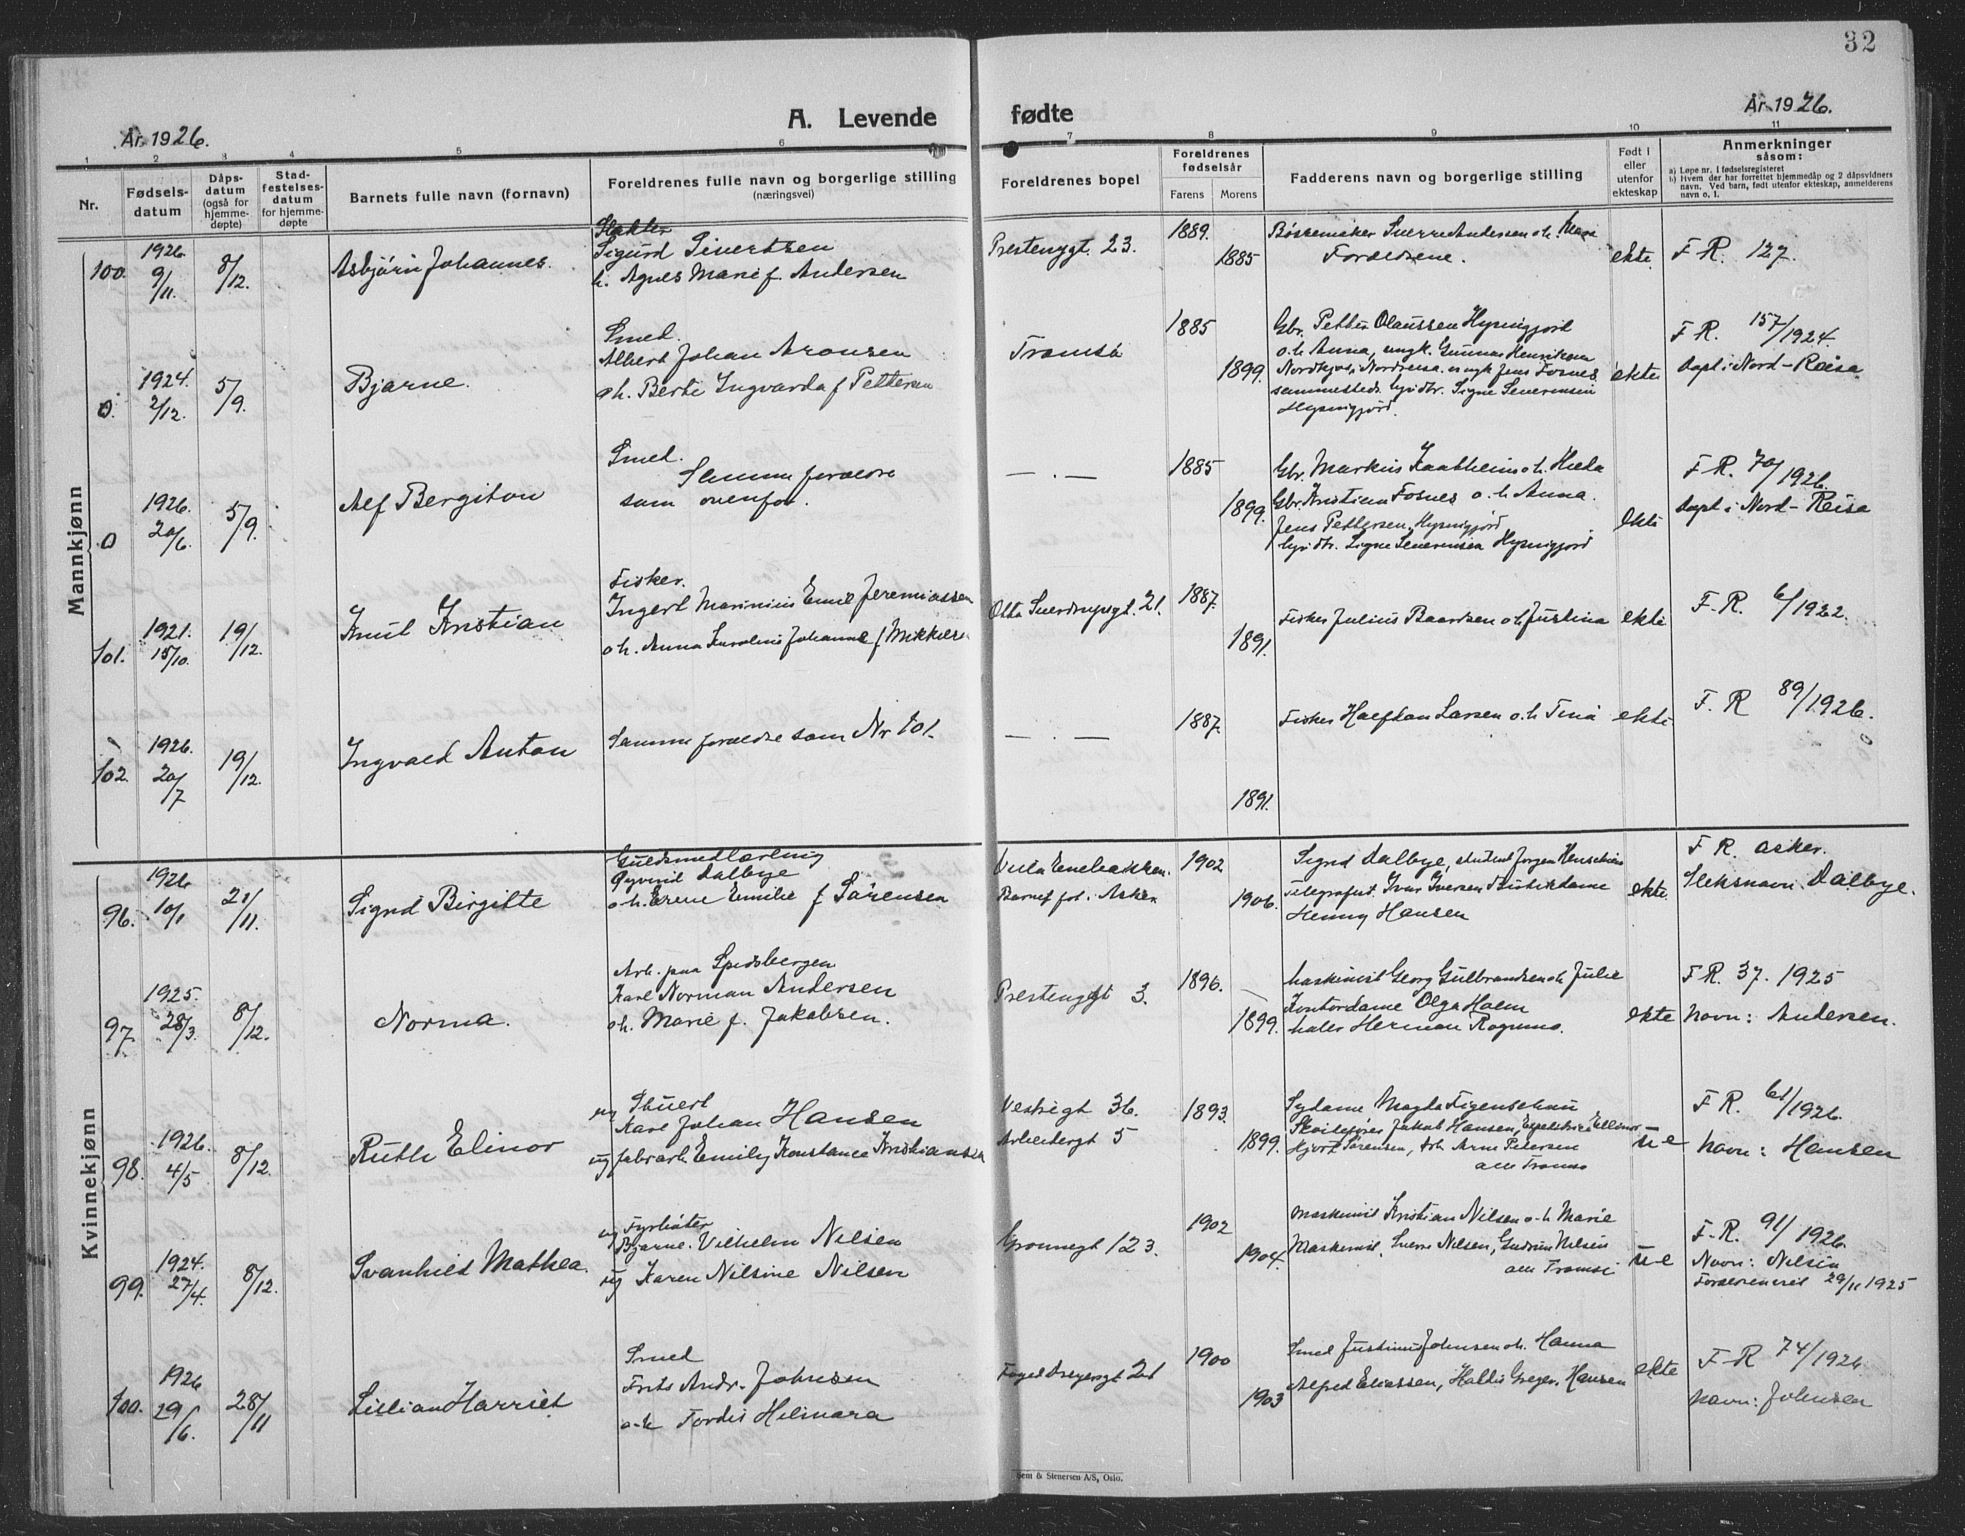 32
År 1926.
A. Levende fødte
År 1926.
1 2 3 4 5 6 7 8 9 10 11
Nr.
Fødsels-
datum
Dåps-
datum
(også for
hjemme-
døpte)
Stad-
festelses-
datum
for hjemme-
døpte
Barnets fulle navn (fornavn)
Foreldrenes fulle navn og borgerlige stilling
(næringsvei)
Foreldrenes bopel
Foreldrenes
fødselsår
Farens Morens
Fadderens navn og borgerlige stilling
Født i
eller
utenfor
ekteskap
Anmerkninger
såsom:
a) Løpe nr. i fødselsregisteret
b) Hvem der har forrettet hjemmedåp og 2 dåpsvidners
navn. Ved barn, født utenfor ekteskap, anmelderens
navn o. l.
Mannkjønn
100. 1926. 9/11. 8/12. Asbjørn Johannes.
Slakter
Sigurd Sivertsen
h. Agnes Marie f. Andersen
Prestenygt. 23. 1889. 1885
Bøssemaker Sverre Andersen o.h.
Foreldrene.
ekte. F.R. 127.
0. 1924. 2/12. 5/9. Bjarne.
Smed.
Albert Johan Aronsen
oh. Berte Ingvarda f Pettersen
Tromsø 1885 1899.
Gbr. Petter Olaussen
o.h Anna, ungk. Gunnar Henriksen
Nordreisa. ungk Jens Fosnes
sammesteds. Signe Severinsen
ekte
F.R. 157/1924
døpt i Nord-Reisa
0 1926. 20/6. 5/9. Alf Bergiton
Smed.
Samme foreldre
som ovenfor.
— . — 1885 1899.
Gbr. Markus o.h.
Gbr. Kristian Fosnes o.h Anna.
Jens Pettersen,
Signe Severinsen
ekte
F.R. 70/1926.
døpt i Nord-Reisa
101. 1921. 15/10. 19/12. Knut Kristian
Fisker.
Ingert Marinius Emil Jeremiassen
o h. Anna Karoline Johanne f Mikkelse
Otto Sverdrupsgt. 21. 1887. 1891.
Fisker Julius Baardsen o h Justina ekte
F.R. 6/1922.
102. 1926. 20/7 19/12. Ingvald Anton
Samme foreldre som Nr 101.
— . — 1887. 1891.
Fisker Halfdan Larsen o.h Tina ekte
F.R 89/1926.
Kvinnekjønn
96. 1926 10/1 21/11. Sigrid Birgitte
Gullsmedlærling
Øyvind Dalbye
o.h. Erene Emilie f Sørensen
Barnef. for. i Asker
1902 1906.
Sigrid Dalbye, student Jørgen
Telegrafist Ivar Iversen
Henny Hansen
ekte.
F.R. Asker.
Slektsnavn. Dalbye.
97. 1925. 28/3. 8/12. Norma.
Arb. paa Spidsbergen
Karl Norman Andersen
oh. Marie f. Jakobsen.
Prestenygt 3. 1896. — 1899.
Maskinist Georg Gulbrandsen oh Julie
Kontordame Olga Holm
Maler Herman Rognmo.
ekte
F.R. 37. 1925
Navn: Andersen.
98. 1926. 4/5 8/12. Ruth Elinor
Stuert
ug Karl Johan Hansen
ug fabrarb. Emily Konstance Kristiansen
Vestregt 36.
Arbeidergt 5
1893. 1899.
Sydame Magda Figenschau
Jakob Hansen,
Hjort Sørensen, Arb Arne Petersen
alle Tromsø
u-e
F.R. 61/1926.
Navn: Hansen
99. 1924. 27/4. 8/12. Svanhild Mathea.
Fyrbøter
ug Bjarne Vilhelm Nilsen
ug Karen Nilsine Nilsen
Grønnegt 123. 1902 1904.
Maskinist Kristian Nilsen o-h Marie
Maskinist. Sverre Nilsen, Gudrun Nilsen
alle Tromsø
u-e
F.R. 91/1926.
Navn: Nilsen
Foreldrene viet 29/11 1925
100. 1926 29/6. 28/11 Lillian Harriet
Smed
Frits Andr. Johnsen
o-h Tordis Hilmara
1900 1903
Smed Johnsen oh. Hanna
Alfred Eliassen, Haldis Hansen
ekte
F-R 74/1926
Navn: Johnsen
Sem & Stenersen A/S, Oslo.